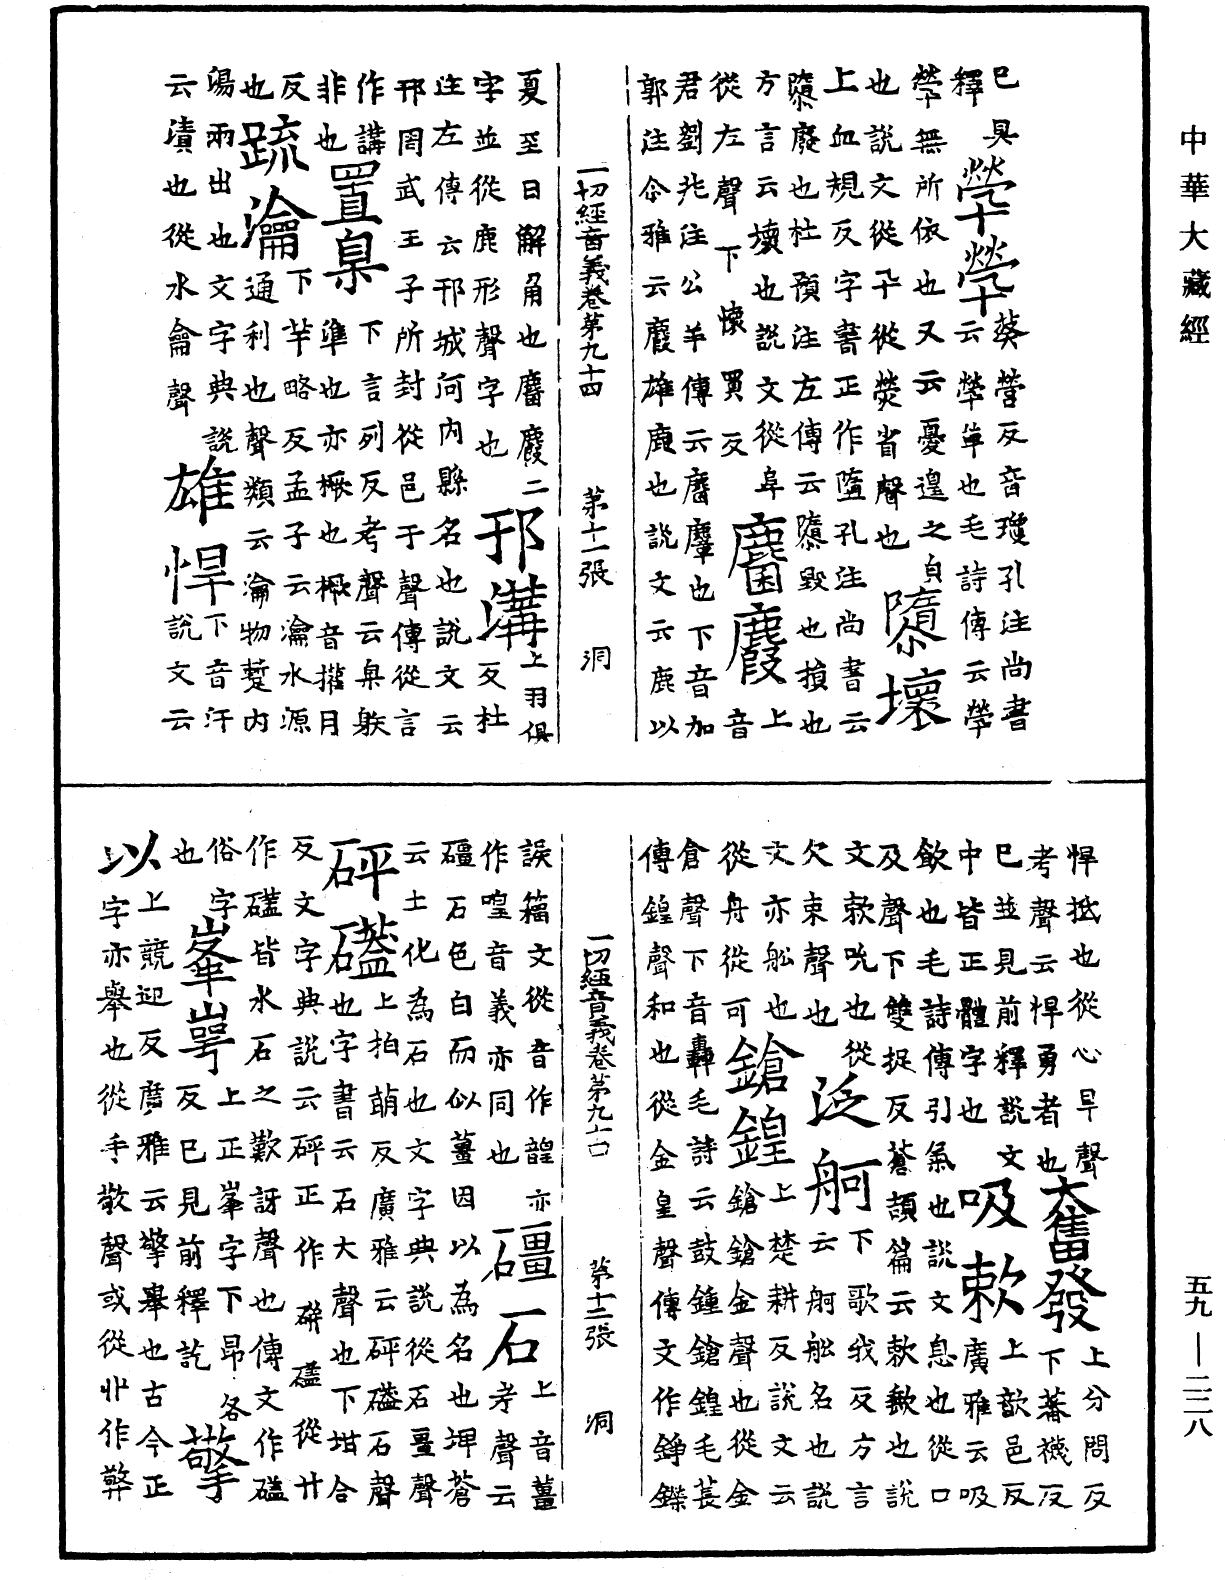 中華大藏經
已具
釋煢煢葵營反音瓊孔注尚書
云煢單也毛詩傳云煢
煢無所依也又云憂遑之皃
也說文從卂從熒省聲也隳壞
上血規反字書正作墮孔注尚書云
隳廢也杜預注左傳云隳毀也損也
方言云壞也說文從阜
從左聲下懷買反麏麚音
君劉兆注公羊傳云麏麞也下音加
郭注尒雅云麚雄鹿也說文云鹿以
一切經音義卷第九十四 第十一張 洞
夏至日解角也麏麚二
字並從鹿形聲字也邗溝上羽俱反杜
注左傳云邗城河內縣名也說文云
邗罔武王子所封從邑于聲傳從言
作講
非也置臬下言列反考聲云臬躲
準也亦橛也橛音擢月
反疏瀹下羊略反孟子云瀹水源
也通利也聲類云瀹物𤎅內
湯兩出也文字典說
云漬也從水龠聲雄悍下音汗
說文云
悍抵也從心旱聲
考聲云悍勇者也奮發上分問反
下蕃襪反
已並見前釋說文
中皆正體字也吸欶上歆邑反
廣雅云吸
飲也毛詩傳引氣也說文息也從口
及聲下雙捉反蒼頡篇云欶歠也說
文欶吮也從
欠束聲也泛舸下歌我反方言
云舸舩名也說
文亦舩也
從舟從可鎗鍠上楚耕反說文云
鎗鎗金聲也從金
倉聲下音轟毛詩云鼓鍾鎗鍠毛萇
傳鍠聲和也從金皇聲傳文作錚鑅
一切經音義卷第九十四 第十二張 洞
誤籀文從音作韹亦
作喤音義亦同也礓石上音薑
考聲云
礓石色白而似薑因以為名也埤蒼
云土化為石也文字典說從石畺聲
砰磕上拍萌反廣雅云砰磕石聲
也字書云石大聲也下坩合
反文字典說云砰正作硑磕從廾
作礚皆水石之歎訝聲也傳文作磕
俗字
也峯崿上正峯字下昂各
反已見前釋訖擎
以上競迎反廣雅云擎舉也古今正
字亦舉也從手敬聲或從廾作㢣
五九—二二八